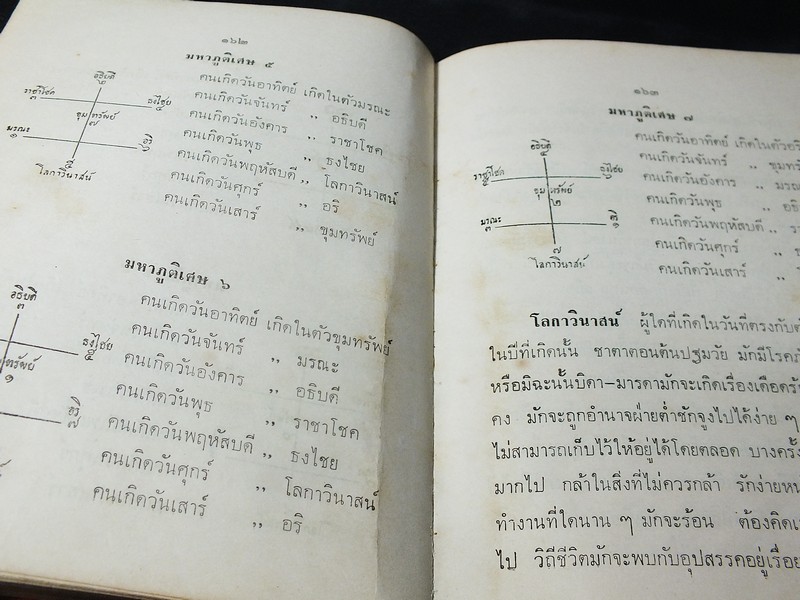 ๑๖๒
มหาภูติเศษ ๕
อธิบดี
๒
ราชาโชค
๓
ธงไชย
๔
ขุมทรัพย์
๗
มรณะ
๑
อริ
๖
๕
โลกาวินาสน์
คนเกิดวันอาทิตย์ เกิดในตัวมรณะ
คนเกิดวันจันทร์ ,, อธิบดี
คนเกิดวันอังคาร ,, ราชาโชค
คนเกิดวันพุธ ,, ธงไชย
คนเกิดวันพฤหัสบดี ,, โลกาวินาสน์
คนเกิดวันศุกร์ ,, อริ
คนเกิดวันเสาร์ ,, ขุมทรัพย์
มหาภูติเศษ ๖
อธิบดี
๓
ธงไชย
๕
ทรัพย์
๑
อริ
๗
คนเกิดวันอาทิตย์ เกิดในตัวขุมทรัพย์
คนเกิดวันจันทร์ ,, มรณะ
คนเกิดวันอังคาร ,, อธิบดี
คนเกิดวันพุธ ,, ราชาโชค
คนเกิดวันพฤหัสบดี ,, ธงไชย
คนเกิดวันศุกร์ ,, โลกาวินาสน์
คนเกิดวันเสาร์ ,, อริ
๑๖๓
มหาภูติเศษ ๗
อธิบดี
ราชาโชค
ธงไชย
ขุมทรัพย์
๒
มรณะ
๓
๑
๗
โลกาวินาสน์
คนเกิดวันอาทิตย์ เกิดในตัวอริ
คนเกิดวันจันทร์ ,, ขุมทร
คนเกิดวันอังคาร ,, มรณ
คนเกิดวันพุธ ,, อธิ
คนเกิดวันพฤหัสบดี ,, รา
คนเกิดวันศุกร์ ,,
คนเกิดวันเสาร์ ,,
โลกาวินาสน์ ผู้ใดที่เกิดในวันที่ตรงกับ
ในปีที่เกิดนั้น ชาตาตอนต้นปฐมวัย มักมีโรคภ
หรือมิฉะนั้นบิดา–มารดามักจะเกิดเรื่องเดือดร้
คง มักจะถูกอำนาจฝ่ายต่ำชักจูงไปได้ง่าย ๆ
ไม่สามารถเก็บไว้ให้อยู่ได้โดยตลอด บางครั้ง
มากไป กล้าในสิ่งที่ไม่ควรกล้า รักง่ายห
ทำงานที่ใดนาน ๆ มักจะร้อน ต้องคิด
ไป วิถีชีวิตมักจะพบกับอุปสรรคอยู่เรื่อย